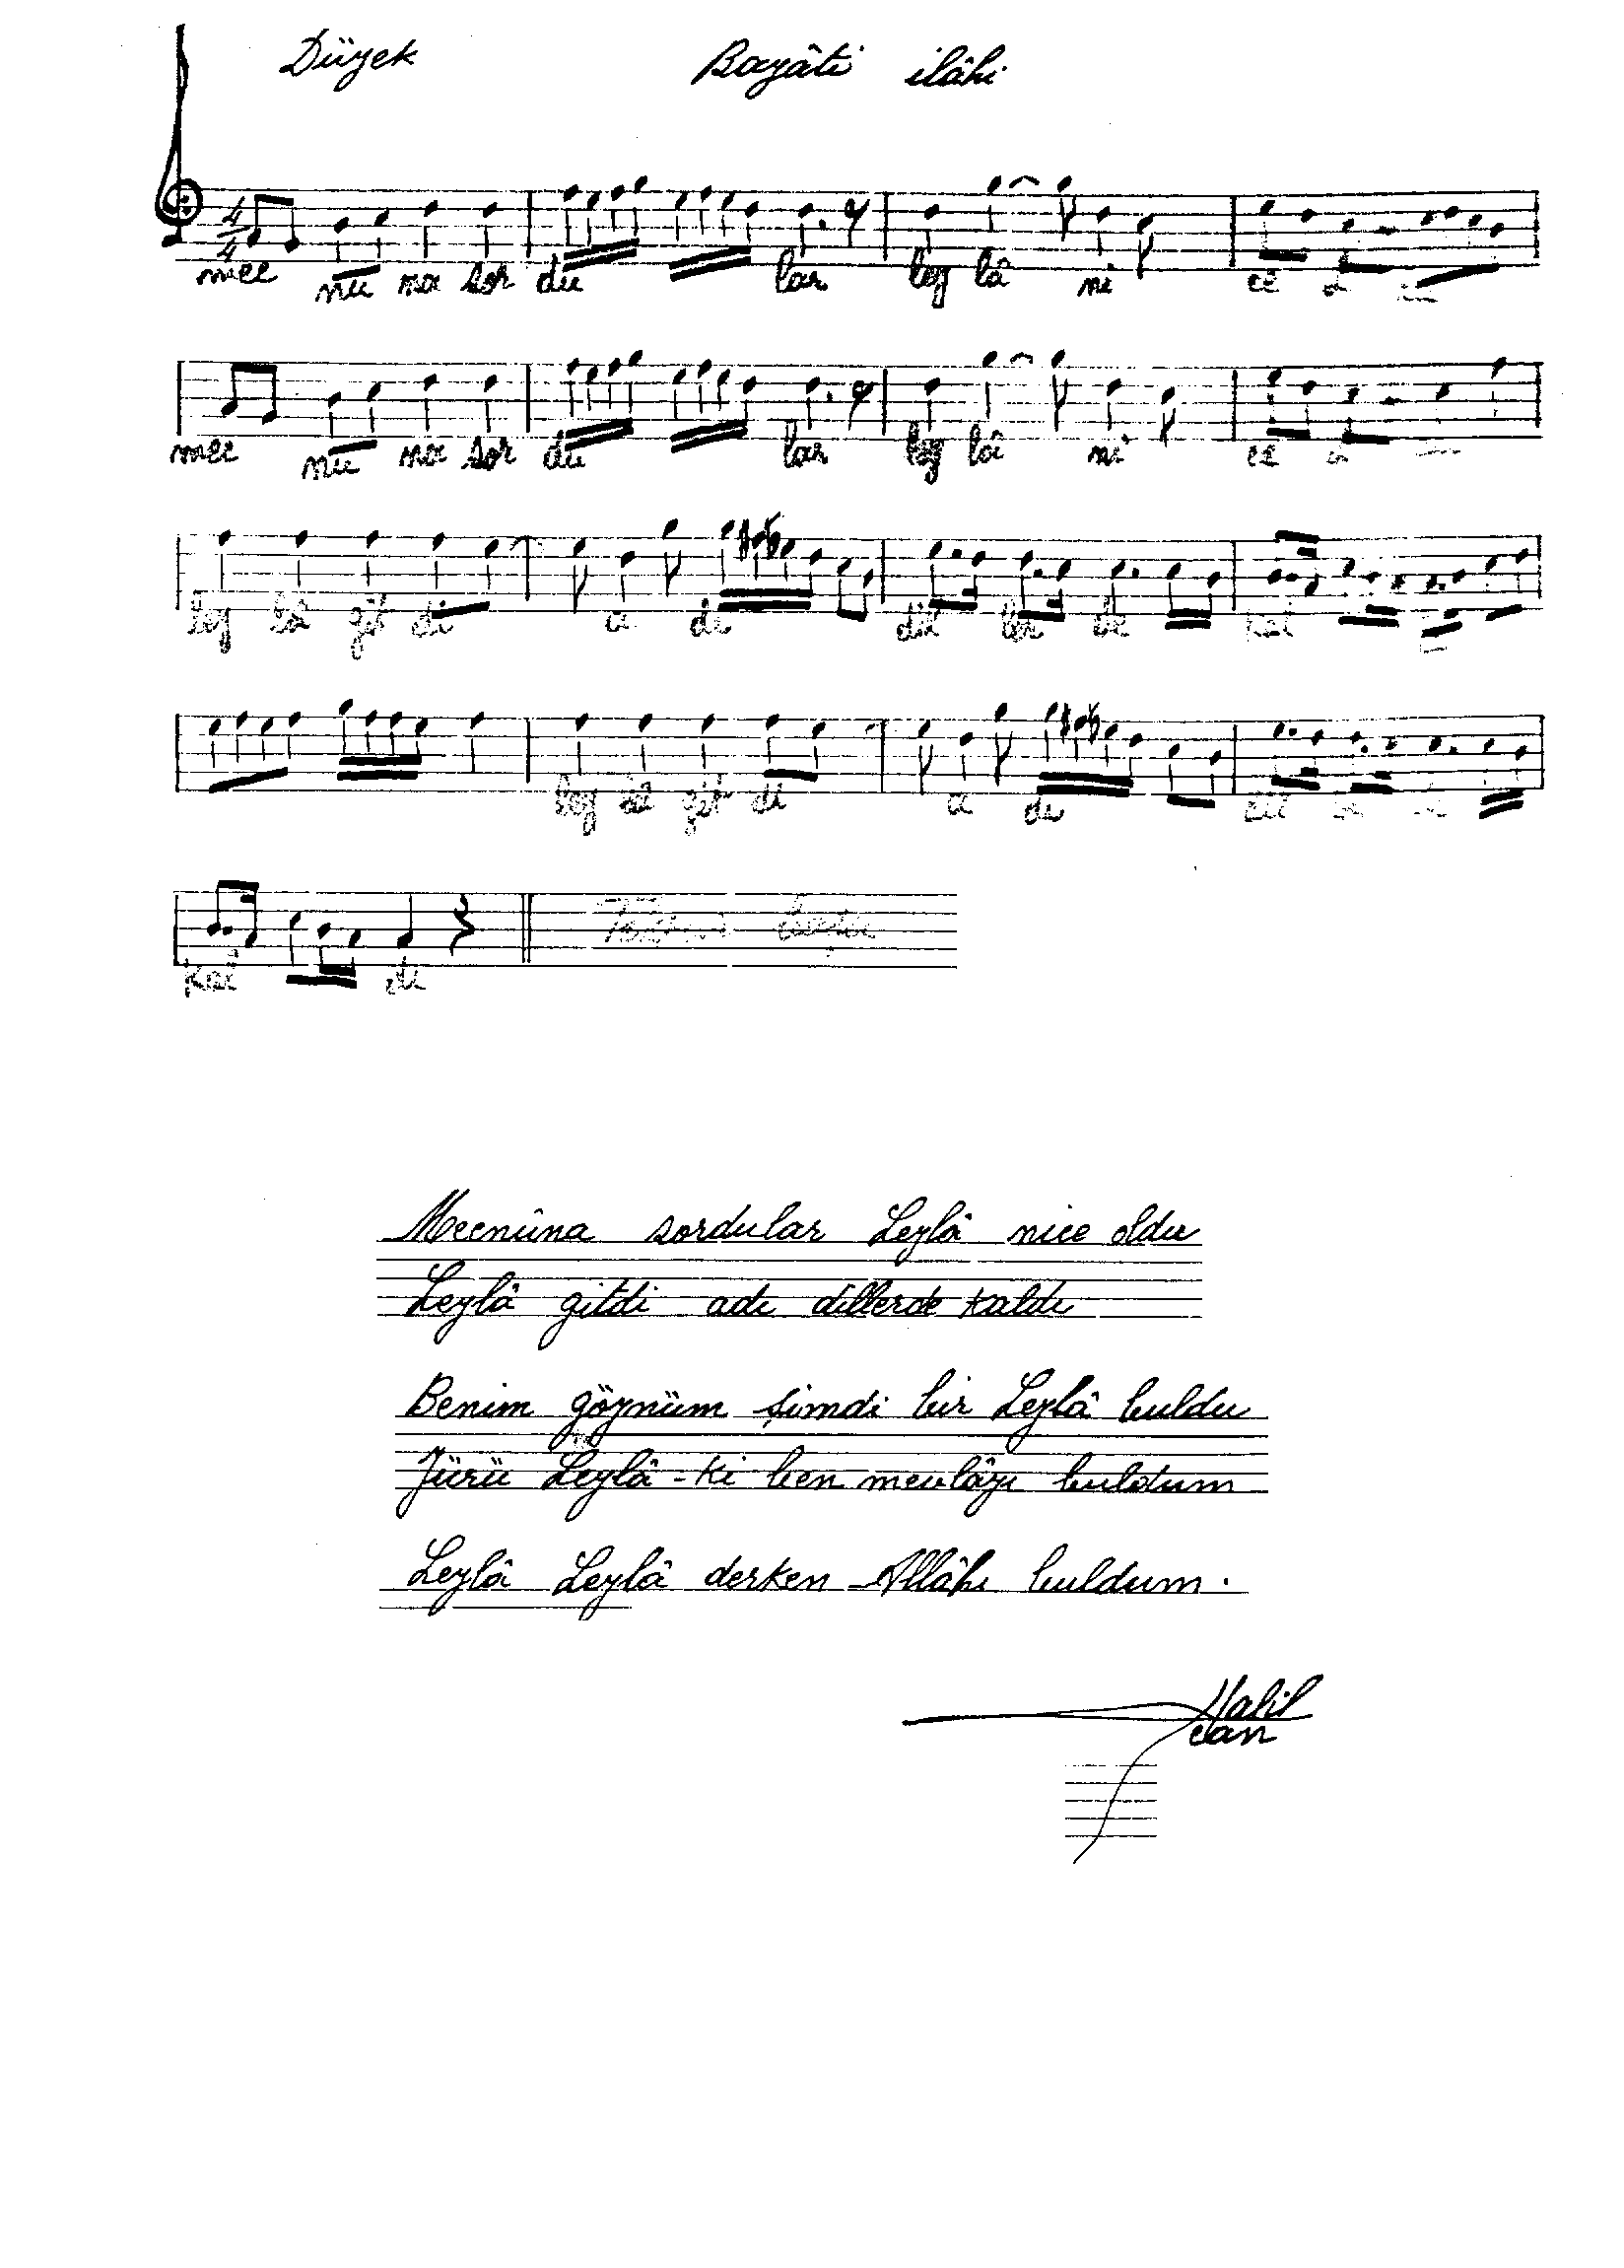 Düyek Bayâti ilâhi
4/4
mec nu na sor du lar ley lâ ni ce
mec nu na sor du lar ley lâ ni ce
ley lâ git di a di dil ler de kal
ley lâ git di a di
kal di
Mecnûna sordular Leylâ nice oldu
Leylâ gitdi adı dillerde kaldı
Benim göynüm şimdi bir Leylâ buldu
Yürü Leylâ-ki ben mevlâyı buldum
Leylâ Leylâ derken Allâhı buldum.
Halil
can